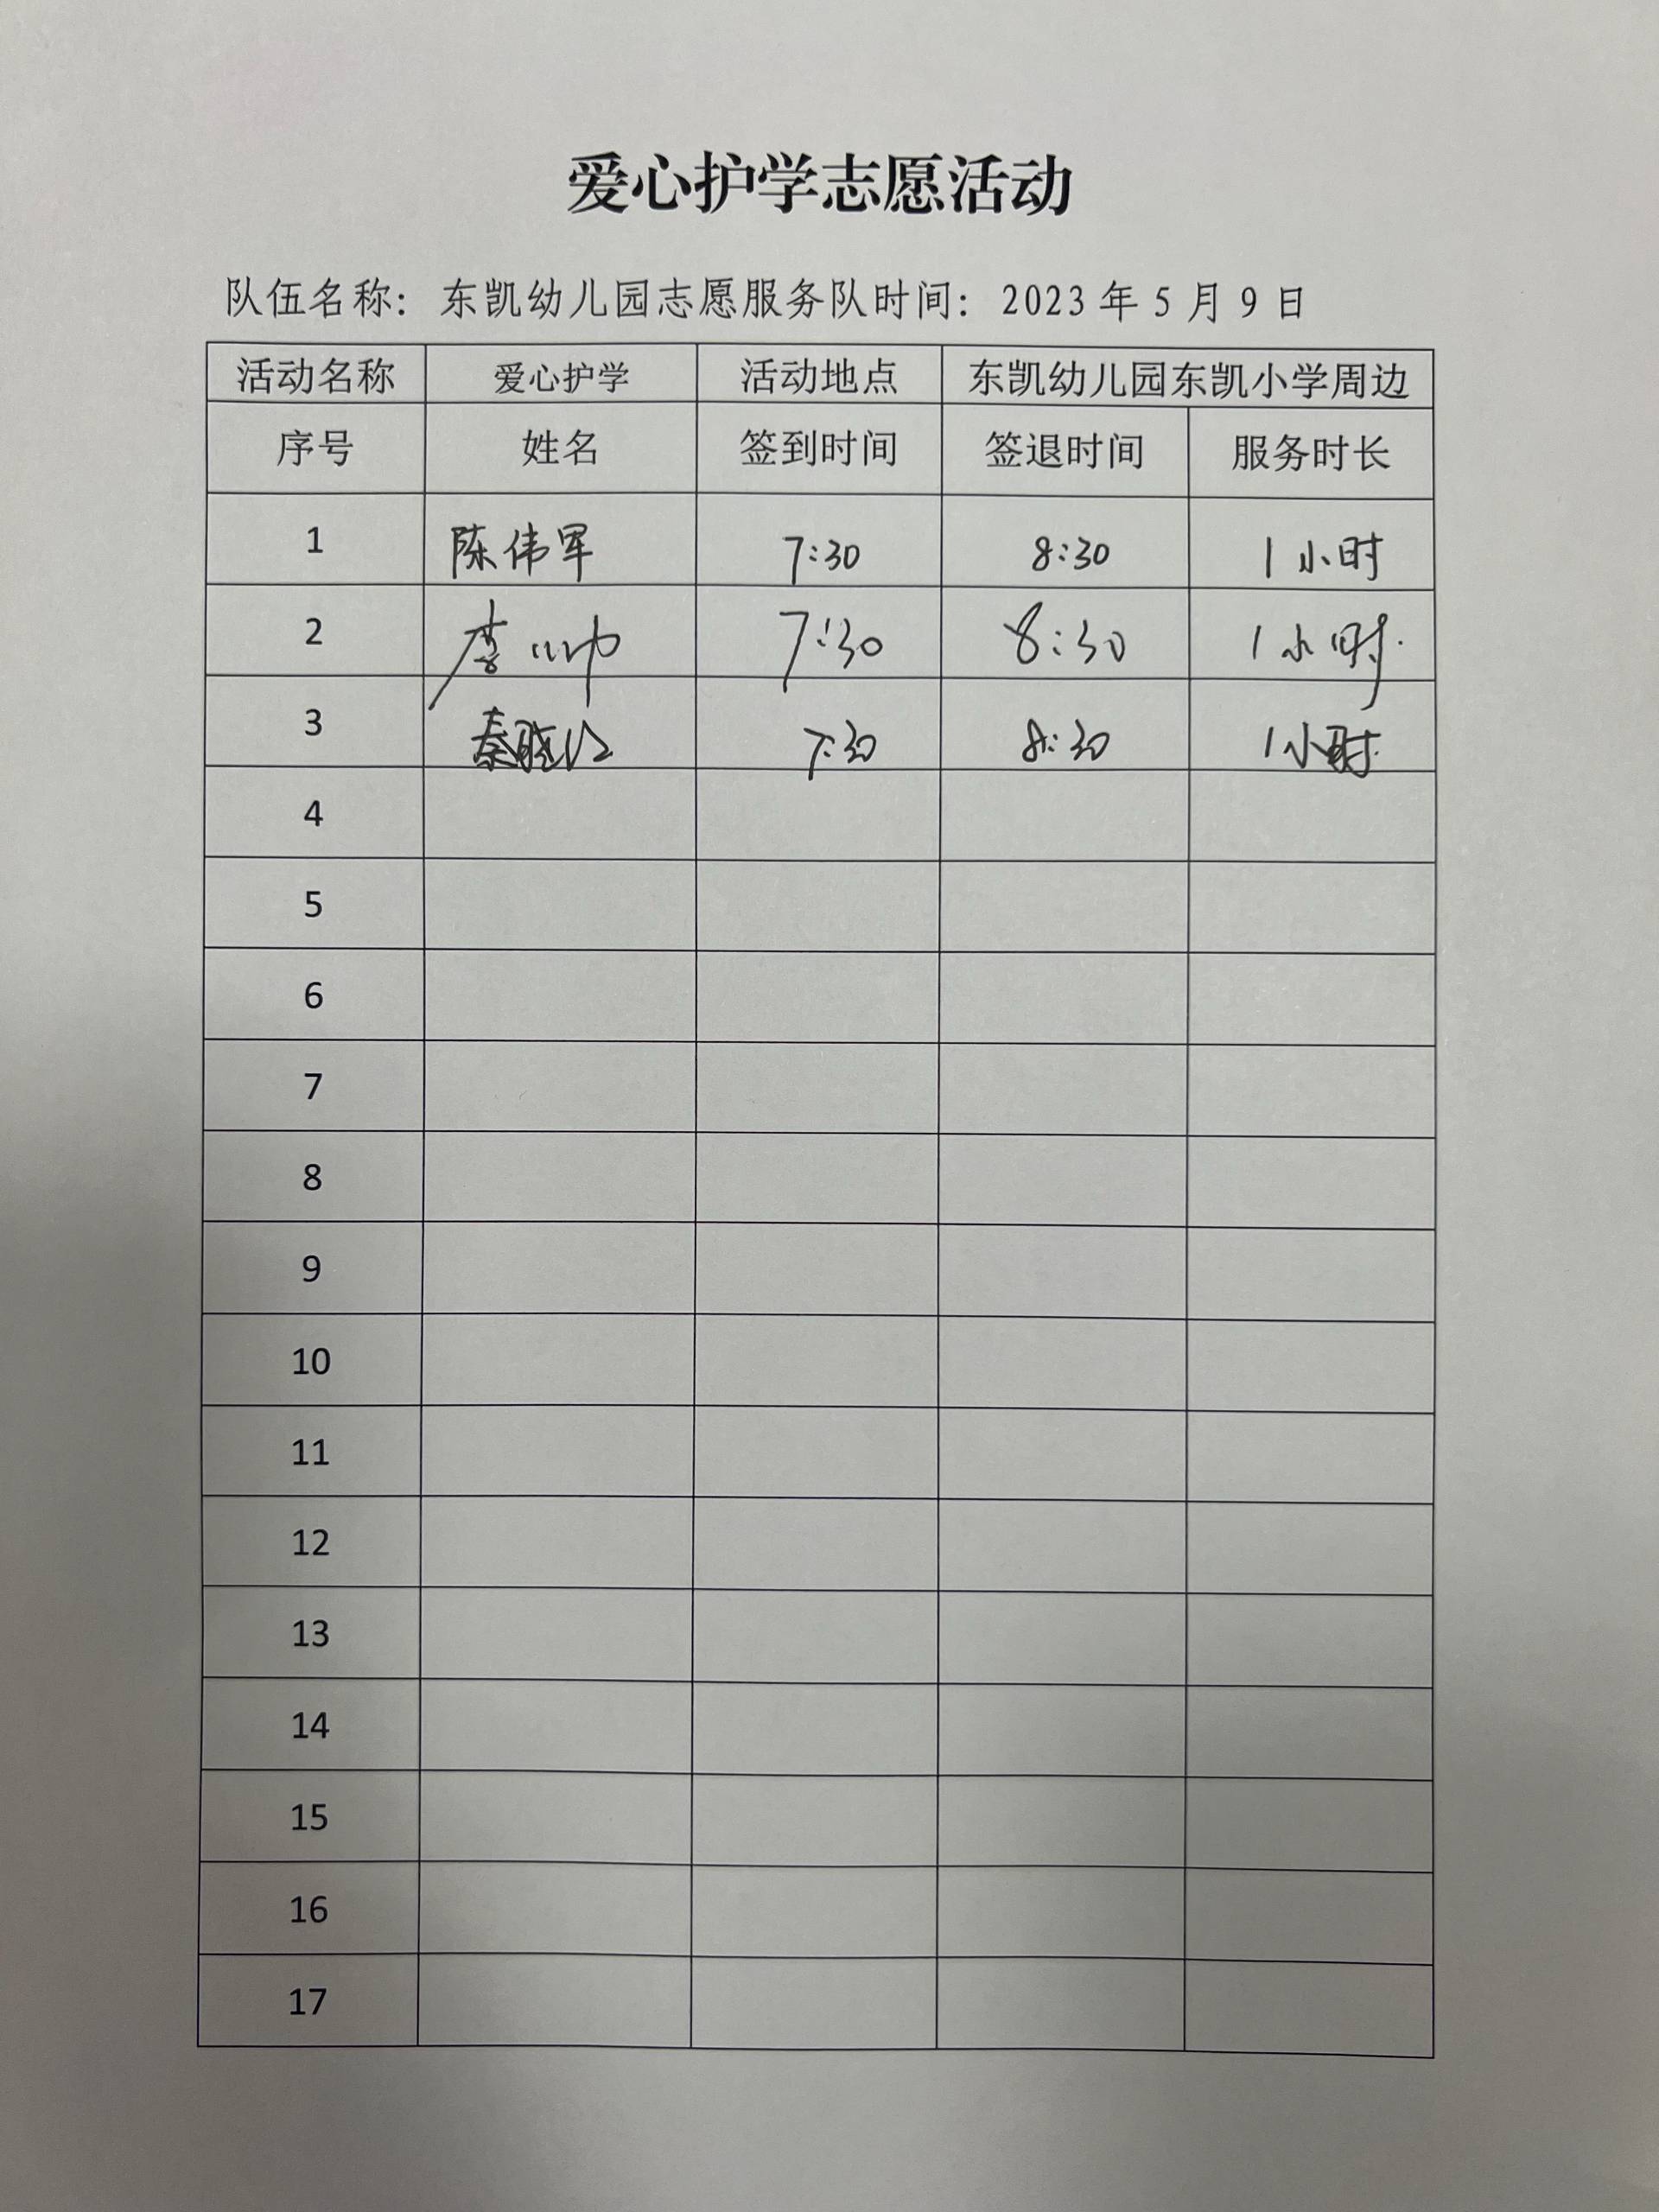 爱心护学志愿活动
队伍名称：东凯幼儿园志愿服务队时间：2023年5月9日
活动名称 爱心护学 活动地点 东凯幼儿园东凯小学周边
序号 姓名 签到时间 签退时间 服务时长
1 陈伟军 7:30 8:30 1小时
2 李小巾 7:30 8:30 1小时
3 秦 7:30 8:30 1小时
4
5
6
7
8
9
10
11
12
13
14
15
16
17